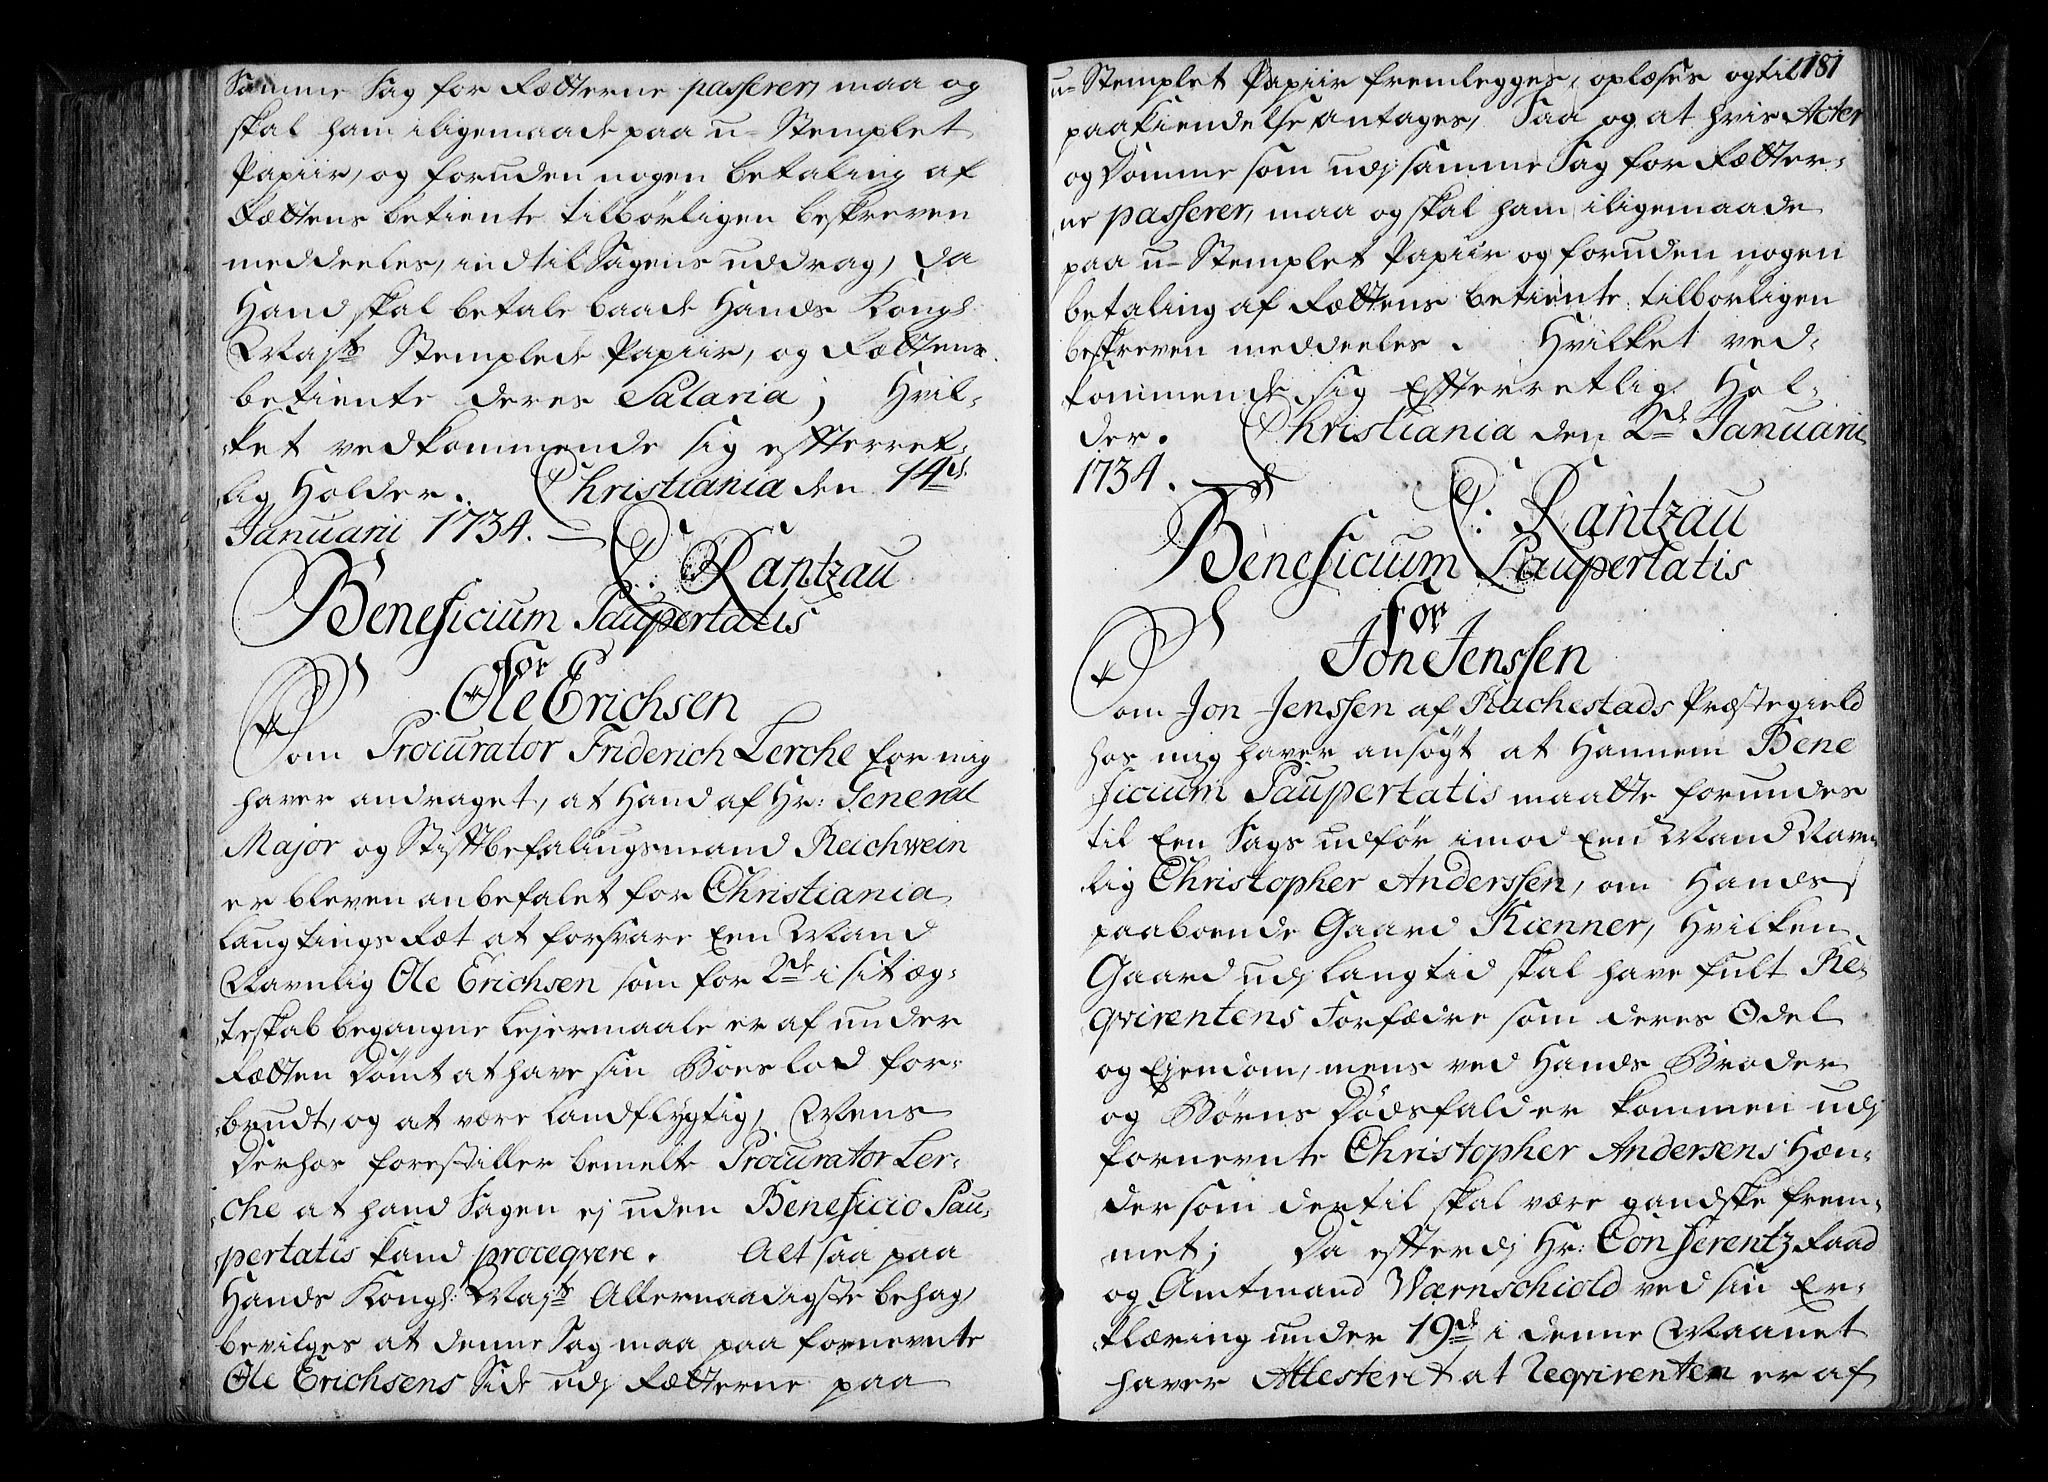 Samme Sag for Retterne passerer, maa og
skal ham iligemaade paa u-Stemplet
Papiir, og foruden nogen betaling af
Rettens betiente tilbörligen beskreven
meddeeles, indtil Sagens uddrag, da
Hand skal betale baade Hands Kongl:
Mayts Stemplede Papiir, og Rettens
betiente deres Salaria; Hvil-
ket vedkommende sig efterret-
lig Holder. Christiania den 14de
Januarii 1734.
C: Rantzau
Beneficium Paupertatis
for
Ole Erichsen
Som Procurator Friderich Lerche for mig
haver andraget, at Hand af Hr: General
Major og Stiftbefalingsmand Reichwein
er bleven anbefalet for Christiania
Laugtings Ræt at forsvare Een Mand
Navnlig Ole Erichsen som for 2de i sit æg-
teskab begangne Lejermaale er af under
Rætten dömt at have sin Boeslod for-
brudt, og at være Landflygtig, Mens
Derhos forestiller bemelte Procurator Ler-
che at hand Sagen ej uden Beneficio Pau-
pertatis kand proceqvere. Alt saa paa
Hands Kongl: Mayts Allernaadigste behag,
bevilges at denne Sag maa paa fornevnte
Ole Erichsens Side udj Rætterne paa
181
u-Stemplet Papiir fremlegges, oplæses og til
paakiendelse antages, Saa og at hvis Acter
og Domme som udj samme Sag for Rætter-
ne passerer, maa og skal ham iligemaade
paa u-Stemplet Papiir og foruden nogen
betaling af Rættens betiente tilbörligen
beskreven meddeeles. Hvilket ved-
kommende sig Efterretlig Hol-
der. Christiania den 2de Januarii
1734.
C: Rantzau
Beneficium Paupertatis
for
Jon Jenssen
Som Jon Jenssen af Rachestads Præstegield
hos mig haver ansögt at Hannem Bene
ficium Paupertatis maatte forundes
til Een Sags udför imod Een Mand Navn
lig Christopher Anderssen, om Hands
paaboende Gaard Kienner, Hvilken
Gaard udj Langtid skal have fult Re-
qvirentens Forfædre som deres Odel
og Ejendom, mens ved Hands Broder
og Börns Dödsfald er kommen udj
fornevnte Christopher Andersens Hæn-
der som dertil skal være gandske frem-
met; Da efterdj Hr: Conferentz Raad
og Amtmand Wærnschiold ved sin Er-
klæring under 19de i denne Maanet
haver Attesteret at Reqvirenten er af